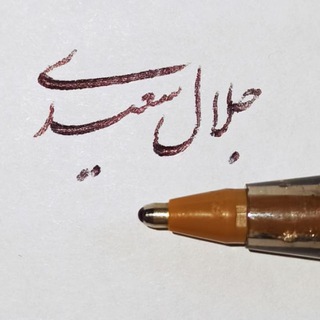 جلال سعیدی